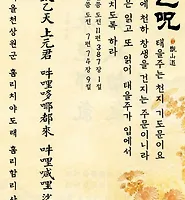 呪
甑山道
태을주는 천지 기도문이요
에 천하 창생을 건지는 주문이니라
은 읽고 또 읽어 태을주가 입에서
치도록 하라
도전 11편 387장 1절
도전 7편 74장 9절
乙天上元君 吽哩哆㖿都來 吽哩喊哩娑
을천상원군 훔리치야도래 훔리함리사